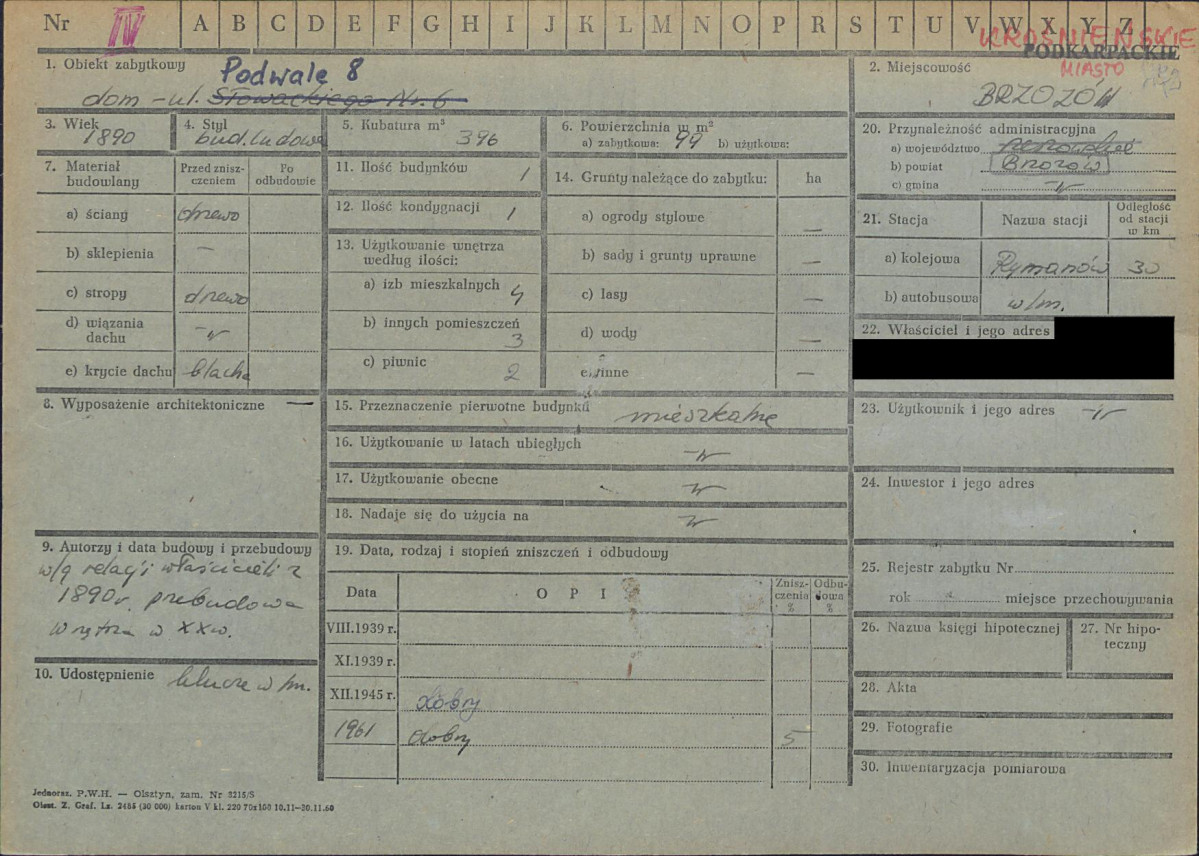 Nr IV A B C D E F G H I J K L M N O P R S T U V W X Y Z
KROŚNIEŃSKIE
PODKARPACKIE
MIASTO
1. Obiekt zabytkowy
Podwale 8
dom - ul. Słowackiego Nr. 6
2. Miejscowość
BRZOZÓW
3. Wiek
1890
4. Styl
bud. ludowe
5. Kubatura m³
396
6. Powierzchnia w m²
a) zabytkowa: 99 b) użytkowa:
20. Przynależność administracyjna
a) województwo rzeszowskie
b) powiat Brzozów
c) gmina -"-
7. Materiał budowlany
Przed zniszczeniem
Po odbudowie
a) ściany drewo
b) sklepienia —
c) stropy drewo
d) wiązania dachu -"-
e) krycie dachu blacha
8. Wyposażenie architektoniczne —
9. Autorzy i data budowy i przebudowy
w/g relacji właścicieli z
1890 r. przebudowa
wnętrza w XXw.
10. Udostępnienie klucze w/m.
11. Ilość budynków 1
12. Ilość kondygnacji 1
13. Użytkowanie wnętrza
według ilości:
a) izb mieszkalnych 4
b) innych pomieszczeń
3
c) piwnic 2
14. Grunty należące do zabytku: ha
a) ogrody stylowe —
b) sady i grunty uprawne —
c) lasy —
d) wody —
e) inne —
15. Przeznaczenie pierwotne budynku mieszkalne
16. Użytkowanie w latach ubiegłych -"-
17. Użytkowanie obecne -"-
18. Nadaje się do użycia na -"-
19. Data, rodzaj i stopień zniszczeń i odbudowy
Data O P I Zniszczenia % Odbudowa %
VIII.1939 r.
XI.1939 r.
XII.1945 r. dobry
1961 dobry 5
21. Stacja Nazwa stacji Odległość od stacji w km
a) kolejowa Rymanów 30
b) autobusowa w/m.
22. Właściciel i jego adres
23. Użytkownik i jego adres -"-
24. Inwestor i jego adres
25. Rejestr zabytku Nr
rok miejsce przechowywania
26. Nazwa księgi hipotecznej
27. Nr hipoteczny
28. Akta
29. Fotografie
30. Inwentaryzacja pomiarowa
Jednoraz. P.W.H. — Olsztyn, zam. Nr 3215/S
Olszt. Z. Graf. Lz. 2485 (30 000) karton V kl. 220 70x100 10.11—30.11.60